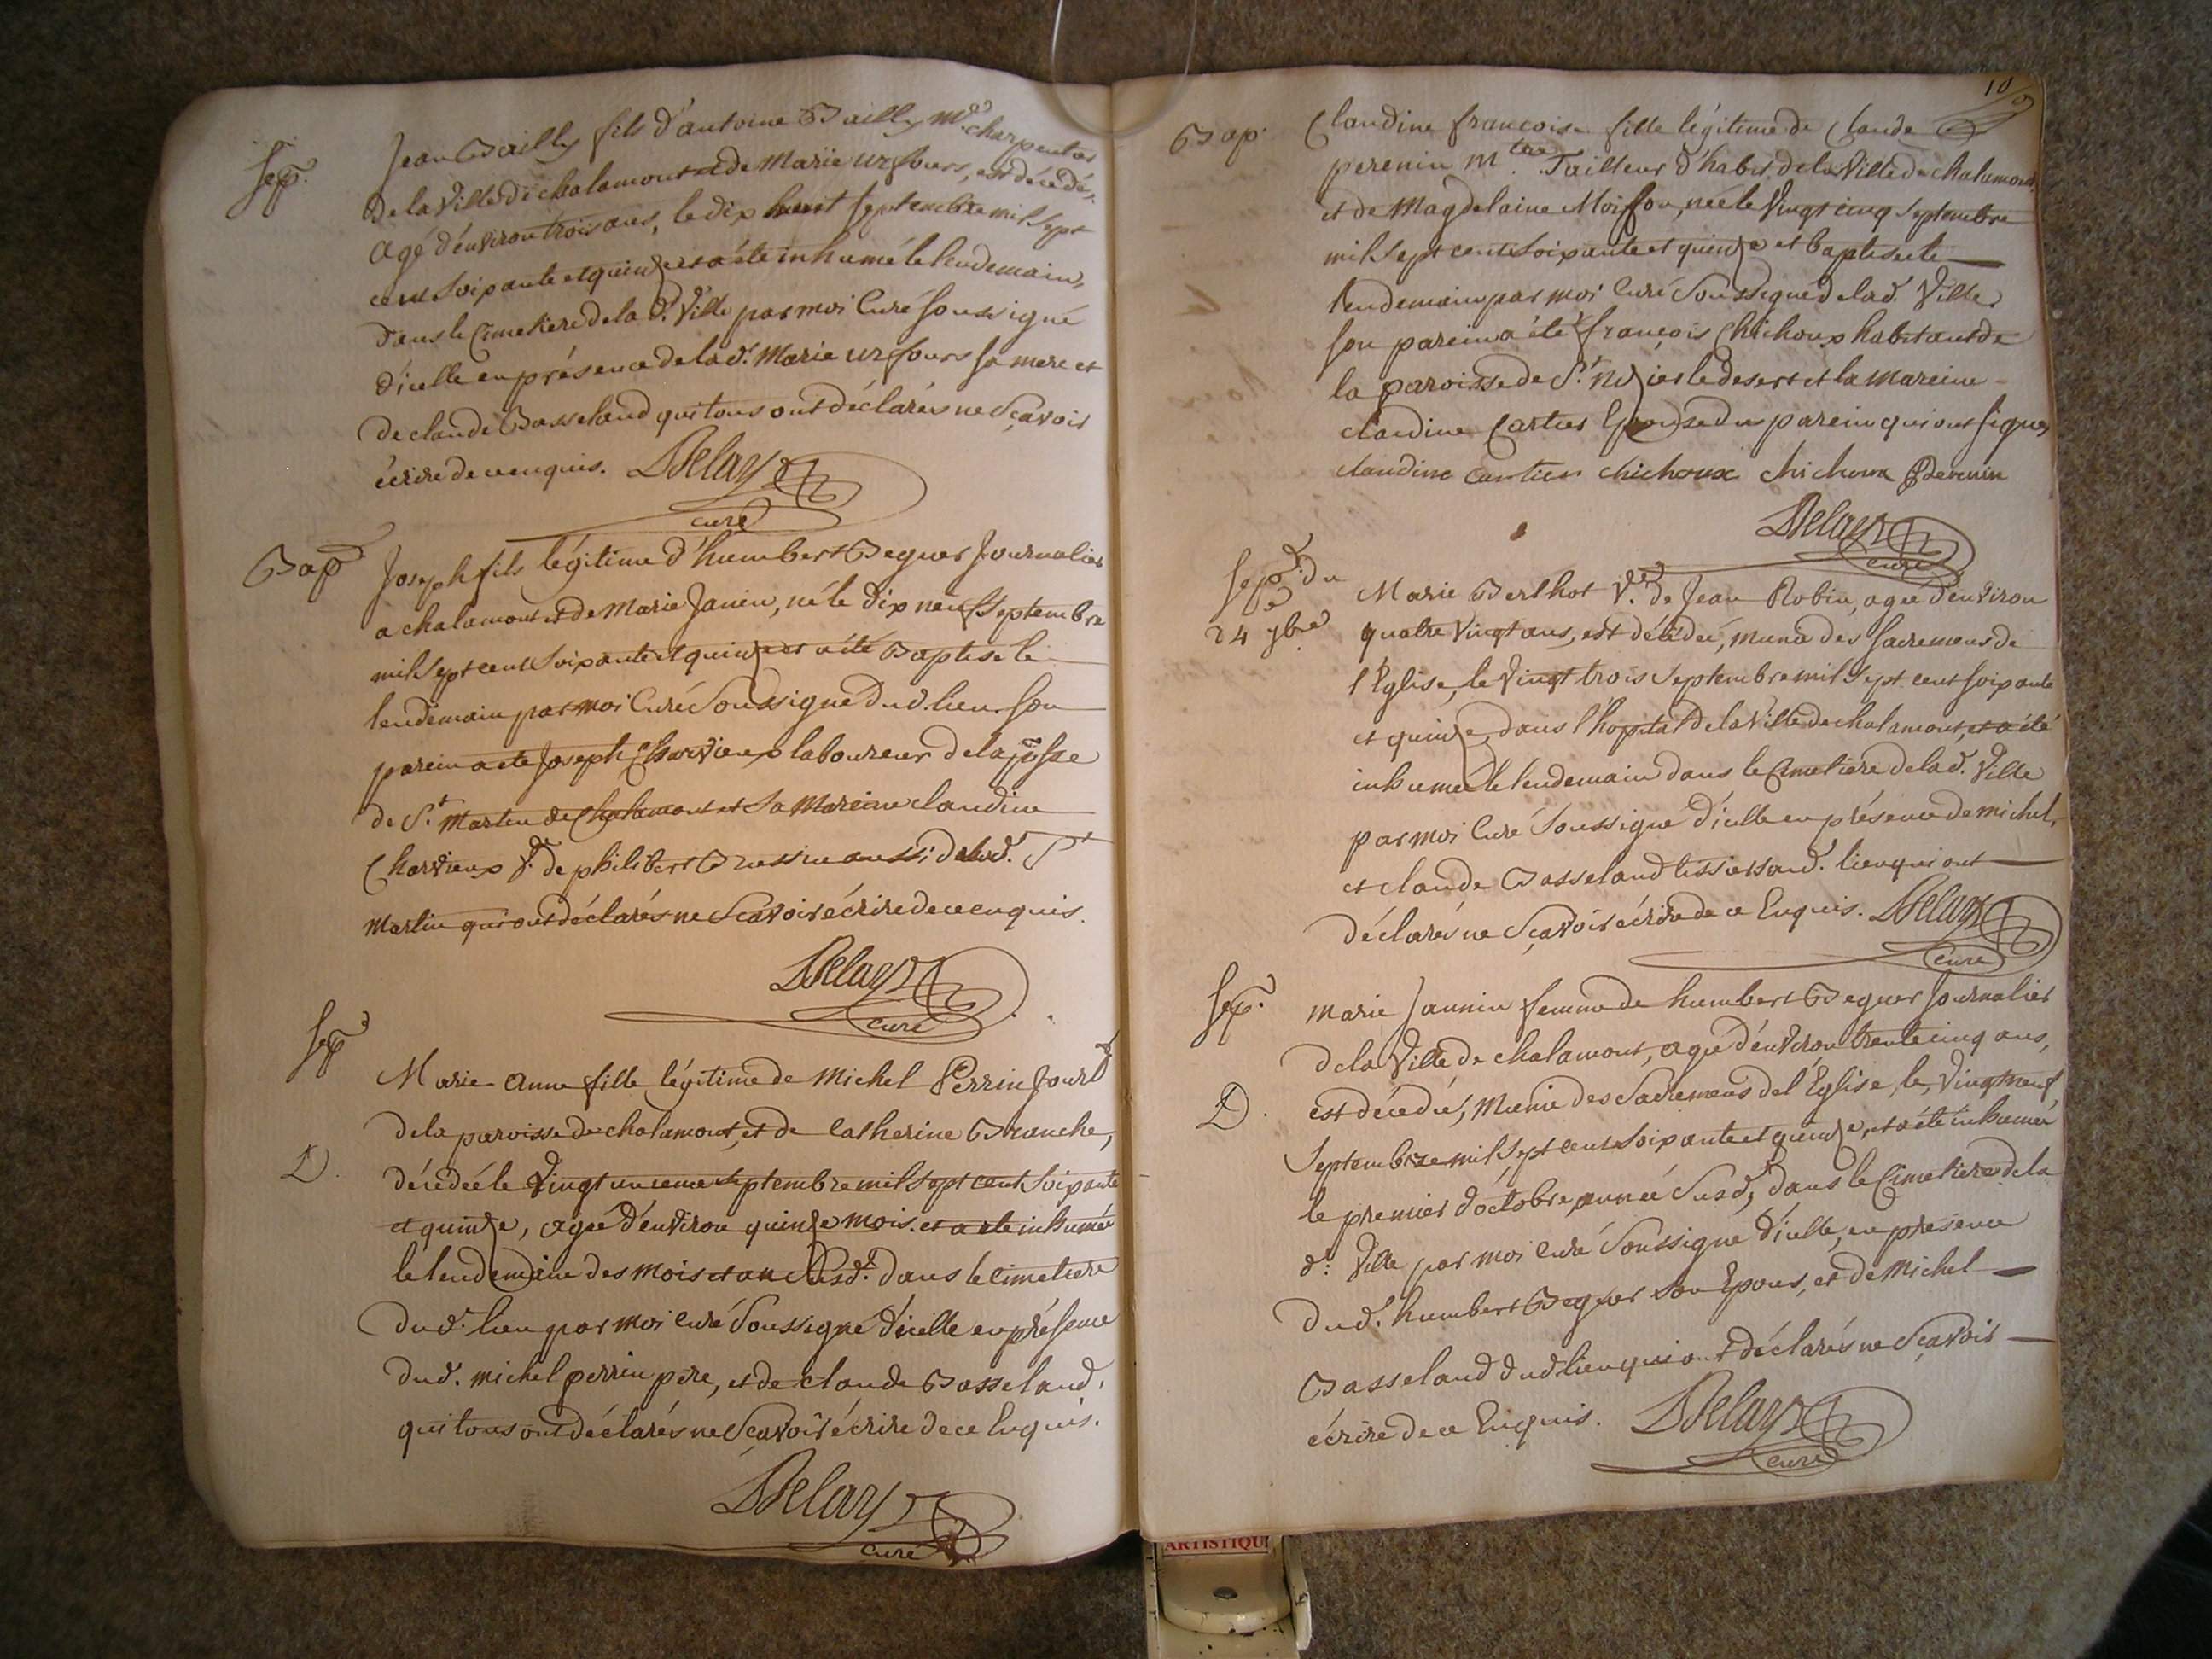 Sep.
Jean Bailly fils d'antoine Bailly Md charpentier
de la Ville de chalamont et de Marie urfours, est décédé,
agé d'environ trois ans, le dix huit septembre mil sept
cent soixante et quinze et a été inhumé le lendemain,
dans le Cimetiere de la d. Ville par moi Curé soussigné
d'icelle en présence de la d. Marie urfours sa mere et
de claude Basseland qui tous ont déclarés ne Sçavoir
écrire de ce enquis. Delay
curé
Bap
Joseph fils légitime d'humbert Beguer Journalier
a chalamont et de Marie Janin, né le dix neuf Septembre
mil sept cent soixante et quinze et a été Baptisé le
lendemain par moi Curé Soussigné dud. lieu. son
parein a été Joseph Charvieux laboureur de la psse
de St Martin de Chalamont et sa Mareine claudine
Charvieux Ve de philibert aussi de lad. St
Martin qui ont déclarés ne Scavoir écrire de ce enquis.
Delay
curé
Sep
Marie Anne fille légitime de Michel Perrin Jourl
de la paroisse de chalamont, et de Catherine Branche,
D.
décédée le Vingt unieme septembre mil sept cent soixante
et quinze, agée d'environ quinze mois. et a été inhumée
le lendemain des mois et an Susd. dans le Cimetiere
dud. lieu par moi Curé Soussigné d'icelle en présence
dud. michel perrin pere, et de claude Basseland,
qui tous ont déclarés ne Scavoir écrire de ce Enquis.
Delay
curé
10
Bap.
Claudine francoise fille légitime de Claude
perenin Mtre Tailleur d'habit de la Ville de chalamont
et de Magdelaine Moisson, née le Vingt cinq septembre
mil sept cent soixante et quinze et baptisée le
lendemain par moi Curé Soussigné de lad. Ville
son parein a été françois Chichoux habitant de
la paroisse de St. Nizier le desert et la mareine
claudine Cartier Epouse du parein qui ont signes
claudine cartier chichoux chichoux Perenin
Delay
curé
Sepe du
24 7bre
Marie Berthot Ve de Jean Robin, agée d'environ
quatre Vingt ans, est décédée, munie des sacremens de
l'Eglise, le Vingt trois Septembre mil Sept cent soixante
et quinze, dans l'hopital de la Ville de chalamont, et a été
inhumée le lendemain dans le Cimetiere de lad. Ville
par moi Curé Soussigné d'icelle en présence de michel,
et claude Basseland tissiers aud. lieu qui ont
déclarés ne Sçavoir écrire de ce Enquis. Delay
curé
Sep.
marie Jannin femme de humbert Beguer Journalier
de la Ville de chalamont, agée d'environ trente cinq ans,
D.
est décédée, munie des Sacremens de l'Eglise, le, Vingt neuf
Septembre mil sept cent soixante et quinze, et a été inhumée
le premier d'octobre, année Susd, dans le Cimetiere de la
d. Ville par moi Curé Soussigné d'icelle, en présence
dud. humbert Beguer son Epoux, et de Michel
Basseland dud lieu qui ont déclarés ne Sçavoir
écrire de ce Enquis. Delay
curé
ARTISTIQU